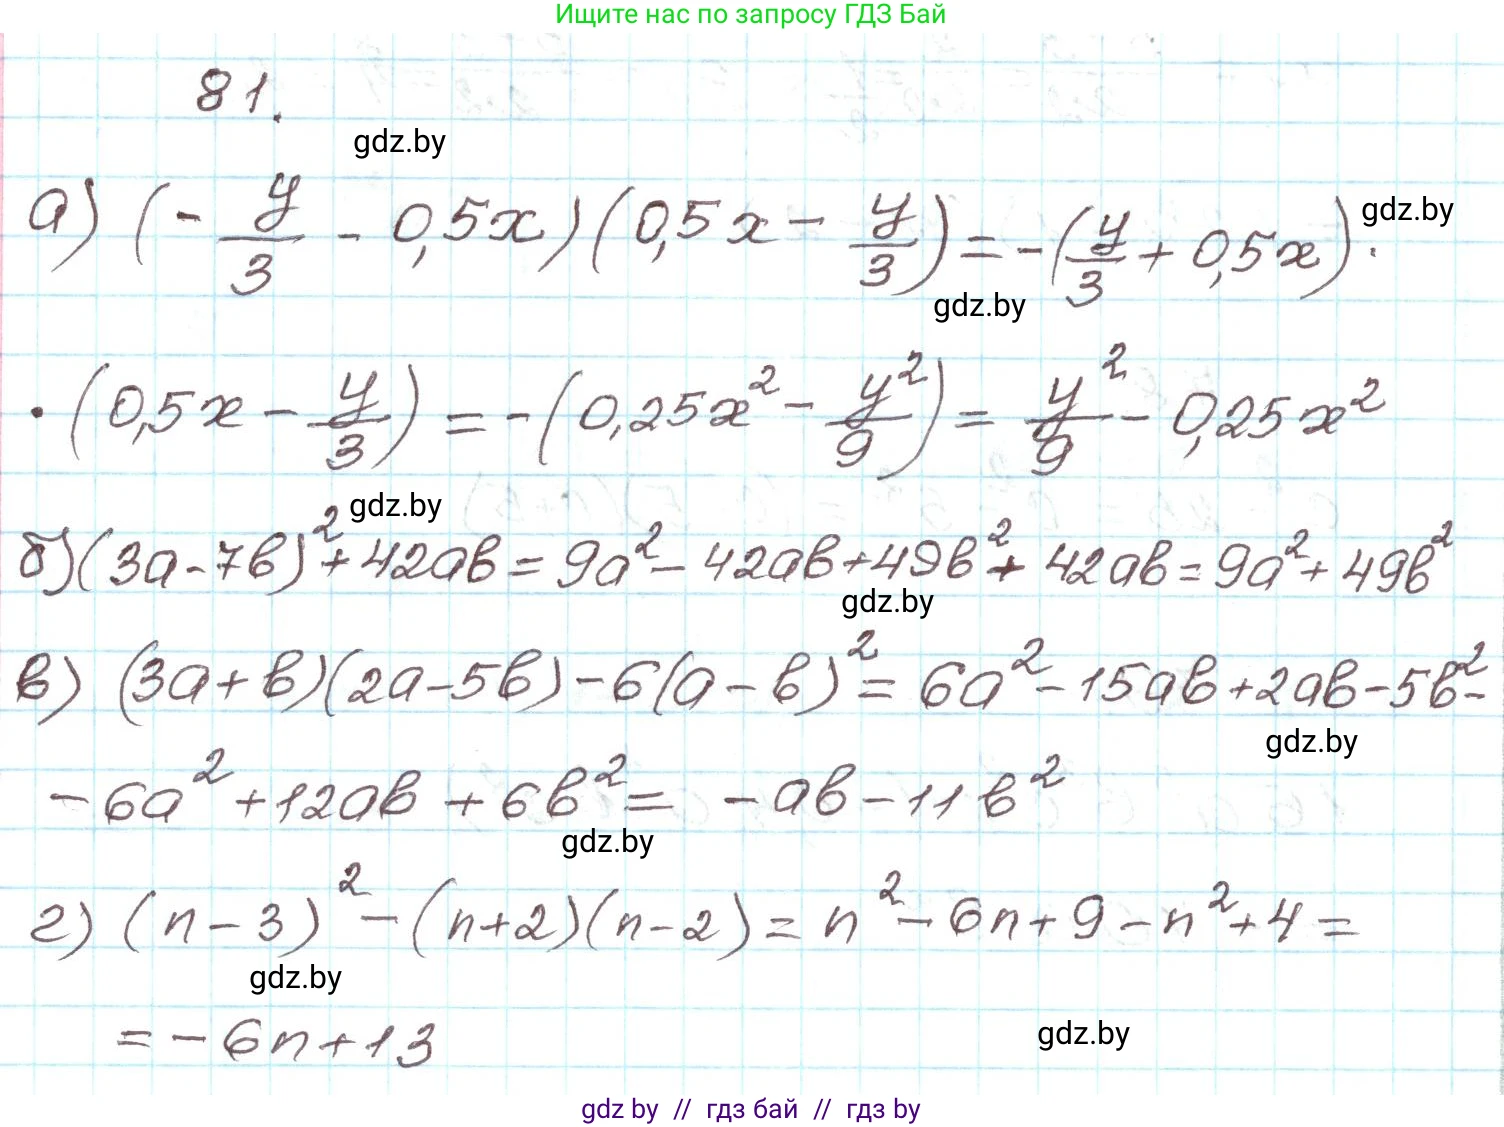 Ищите нас по запросу ГДЗ Бай
81.
gdz.by
а) (- y/3 - 0,5x)(0,5x - y/3) = -(y/3 + 0,5x) ·
gdz.by
gdz.by
· (0,5x - y/3) = -(0,25x² - y²/9) = y²/9 - 0,25x²
gdz.by
б) (3a - 7b)² + 42ab = 9a² - 42ab + 49b² + 42ab = 9a² + 49b²
gdz.by
в) (3a + b)(2a - 5b) - 6(a - b)² = 6a² - 15ab + 2ab - 5b² -
gdz.by
- 6a² + 12ab + 6b² = - ab - 11b²
gdz.by
г) (n - 3)² - (n + 2)(n - 2) = n² - 6n + 9 - n² + 4 =
gdz.by
= - 6n + 13
gdz.by
gdz by // гдз бай // гдз by